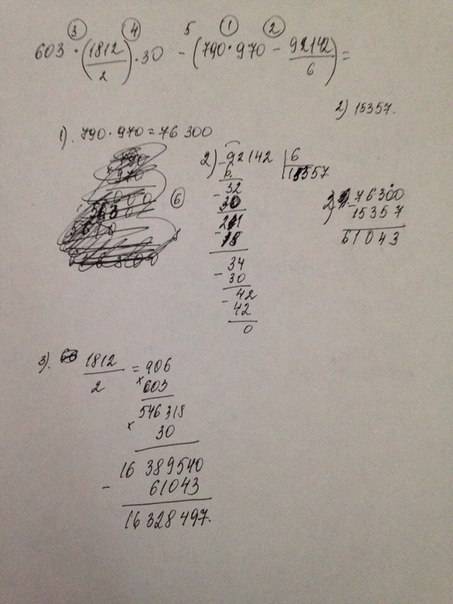 ③ ④ 5 ① ②
603 · (1812/2) · 30 - (790 · 970 - 92142/6) =
2) 15357.
1). 790 · 970 = 76 300
2) 92142 | 6
15357
6
- 32
30
21
- 18
34
- 30
- 42
42
0
⑥
76300
15357
61043
3). 1812/2 = 906
× 603
546318
× 30
16 389540
- 61043
16 328 497.